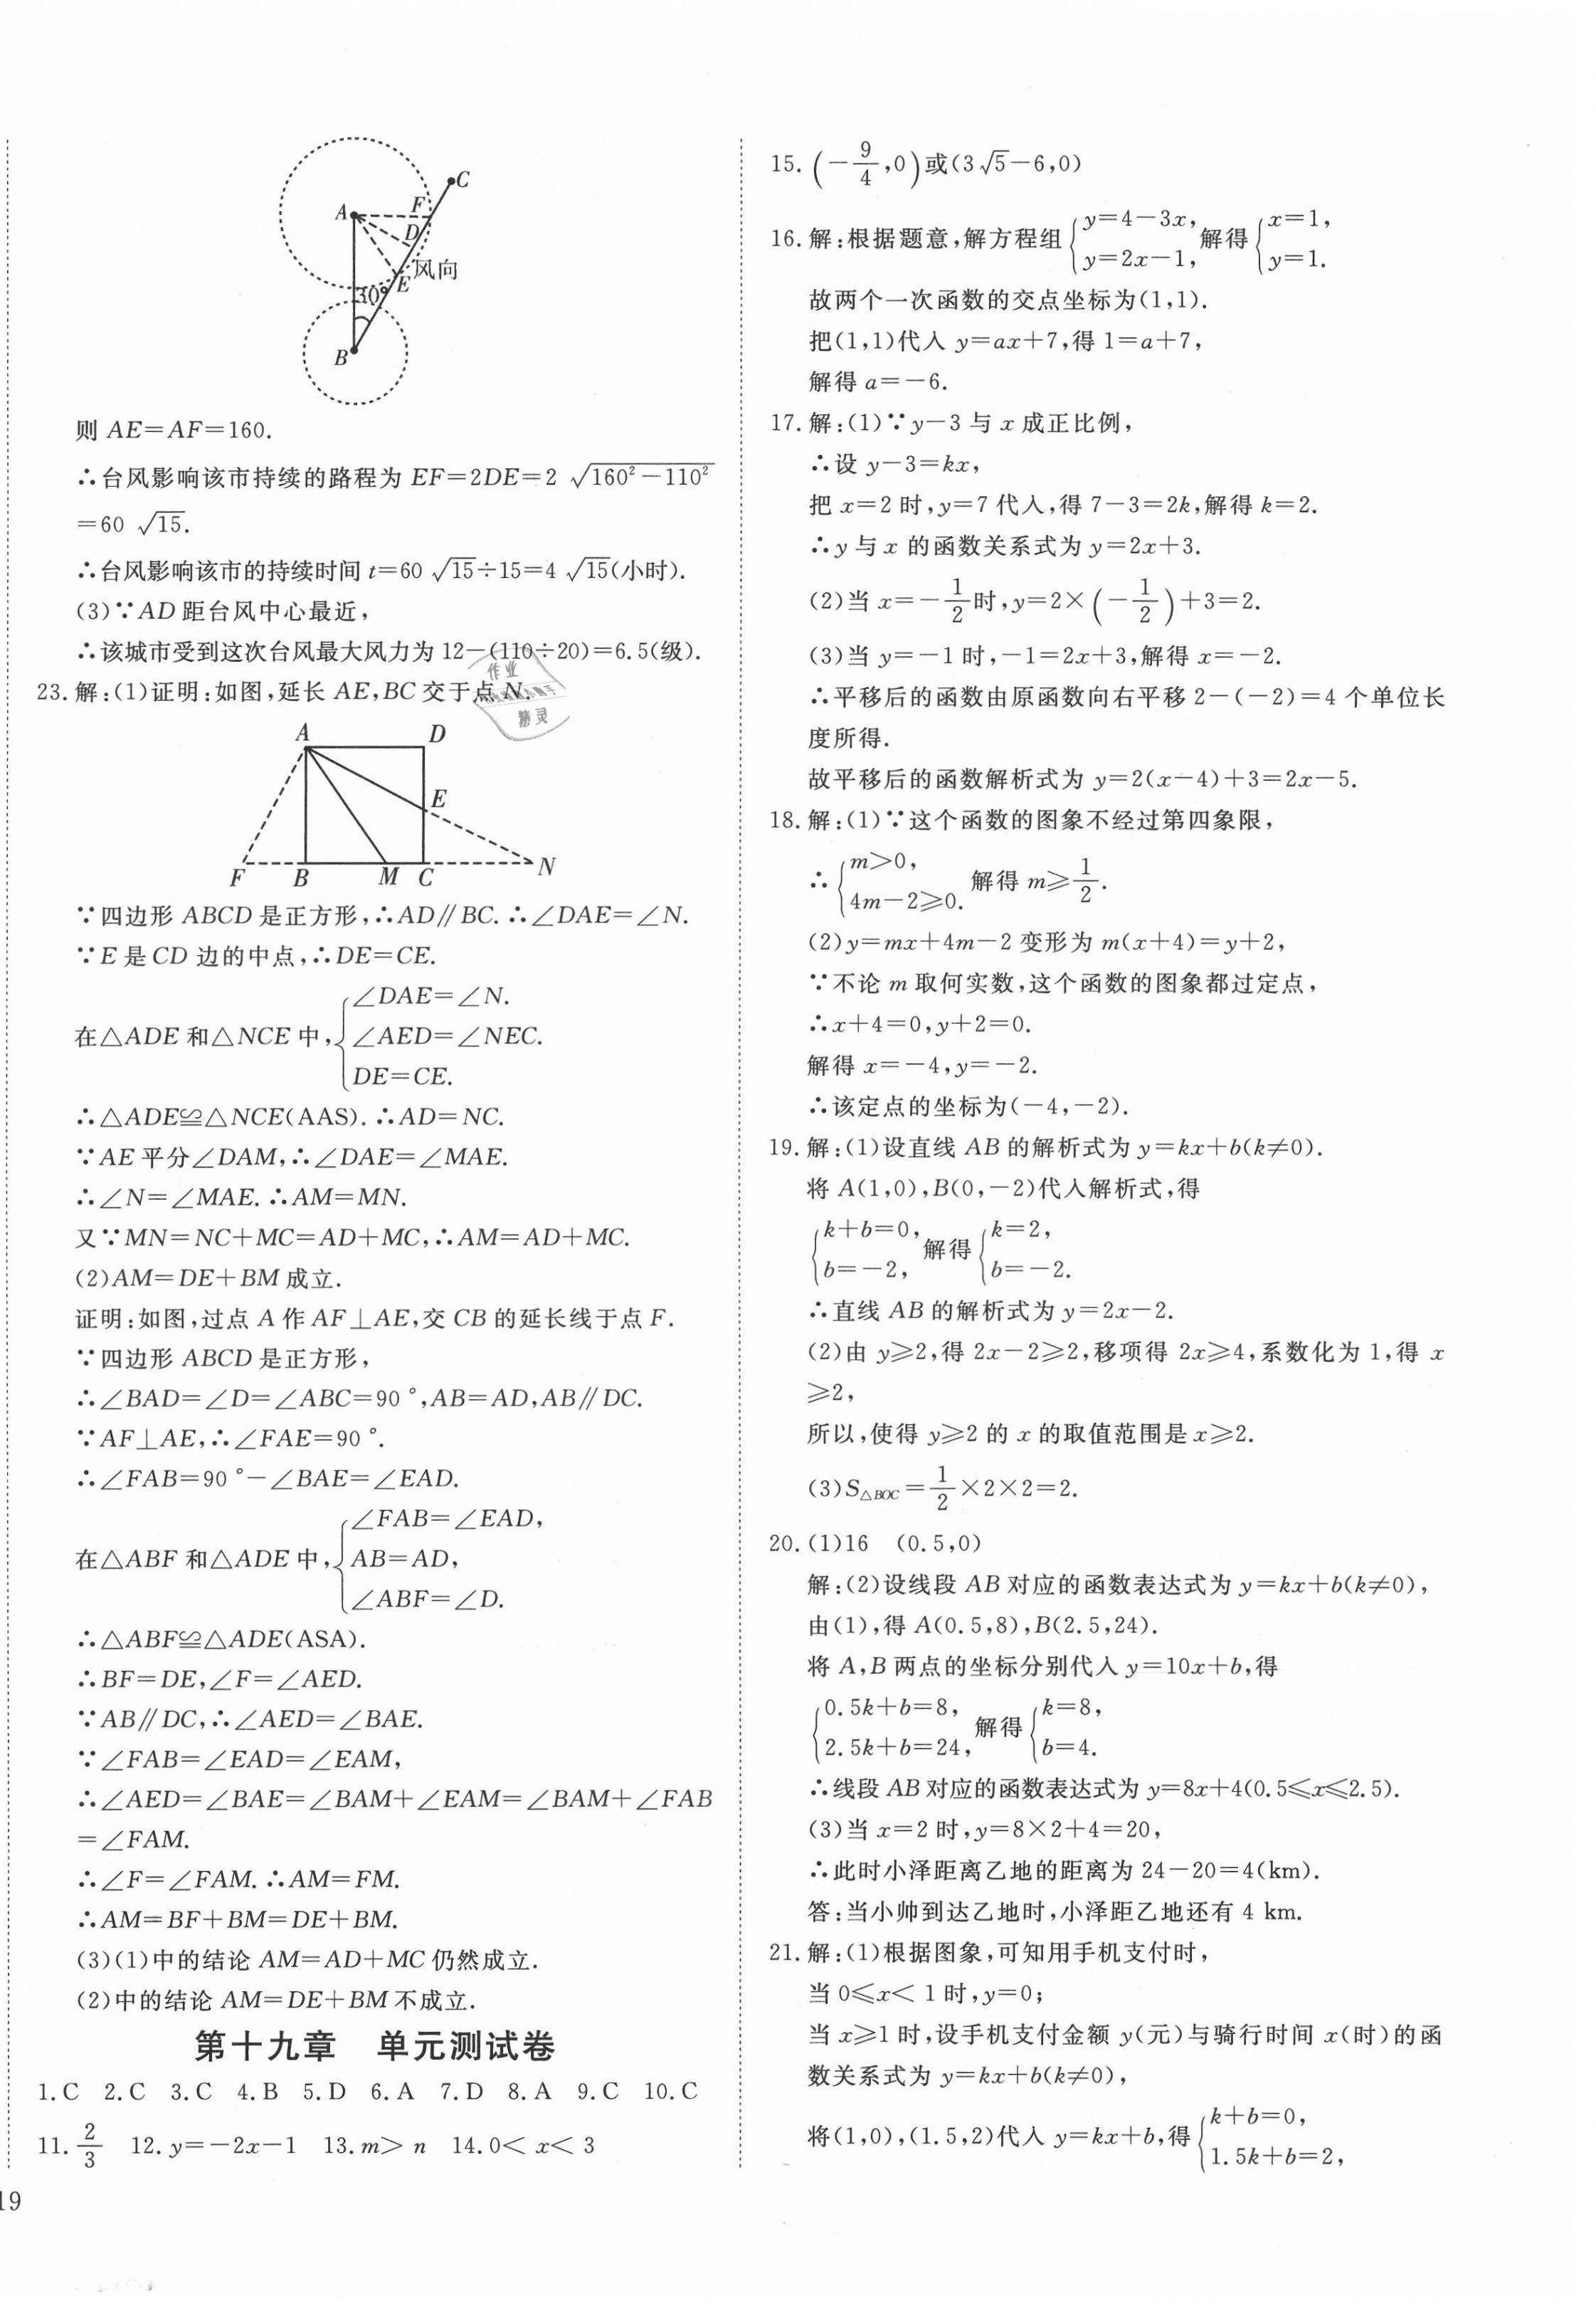 C
A
F
D
风向
E
30°
B
则 AE=AF=160.
∴台风影响该市持续的路程为 EF=2DE=2√(160²-110²)
=60√15.
∴台风影响该市的持续时间 t=60√15÷15=4√15(小时).
(3)∵AD 距台风中心最近,
∴该城市受到这次台风最大风力为 12-(110÷20)=6.5(级).
23.解:(1)证明:如图,延长 AE,BC 交于点 N.
作业
精灵
A D
E
F B M C N
∵四边形 ABCD 是正方形,∴AD∥BC.∴∠DAE=∠N.
∵E 是 CD 边的中点,∴DE=CE.
∠DAE=∠N.
在△ADE 和△NCE 中,{∠AED=∠NEC.
DE=CE.
∴△ADE≌△NCE(AAS).∴AD=NC.
∵AE 平分∠DAM,∴∠DAE=∠MAE.
∴∠N=∠MAE.∴AM=MN.
又∵MN=NC+MC=AD+MC,∴AM=AD+MC.
(2)AM=DE+BM 成立.
证明:如图,过点 A 作 AF⊥AE,交 CB 的延长线于点 F.
∵四边形 ABCD 是正方形,
∴∠BAD=∠D=∠ABC=90°,AB=AD,AB∥DC.
∵AF⊥AE,∴∠FAE=90°.
∴∠FAB=90°-∠BAE=∠EAD.
∠FAB=∠EAD,
在△ABF 和△ADE 中,{AB=AD,
∠ABF=∠D.
∴△ABF≌△ADE(ASA).
∴BF=DE,∠F=∠AED.
∵AB∥DC,∴∠AED=∠BAE.
∵∠FAB=∠EAD=∠EAM,
∴∠AED=∠BAE=∠BAM+∠EAM=∠BAM+∠FAB
=∠FAM.
∴∠F=∠FAM.∴AM=FM.
∴AM=BF+BM=DE+BM.
(3)(1)中的结论 AM=AD+MC 仍然成立.
(2)中的结论 AM=DE+BM 不成立.
第十九章 单元测试卷
1.C 2.C 3.C 4.B 5.D 6.A 7.D 8.A 9.C 10.C
11.2/3 12.y=-2x-1 13.m>n 14.0<x<3
19
15.(-9/4,0)或(3√5-6,0)
16.解:根据题意,解方程组{y=4-3x, y=2x-1, 解得{x=1, y=1.
故两个一次函数的交点坐标为(1,1).
把(1,1)代入 y=ax+7,得 1=a+7,
解得 a=-6.
17.解:(1)∵y-3 与 x 成正比例,
∴设 y-3=kx,
把 x=2 时,y=7 代入,得 7-3=2k,解得 k=2.
∴y 与 x 的函数关系式为 y=2x+3.
(2)当 x=-1/2时,y=2×(-1/2)+3=2.
(3)当 y=-1 时,-1=2x+3,解得 x=-2.
∴平移后的函数由原函数向右平移 2-(-2)=4 个单位长
度所得.
故平移后的函数解析式为 y=2(x-4)+3=2x-5.
18.解:(1)∵这个函数的图象不经过第四象限,
∴{m>0, 4m-2≥0. 解得 m≥1/2.
(2)y=mx+4m-2 变形为 m(x+4)=y+2,
∵不论 m 取何实数,这个函数的图象都过定点,
∴x+4=0,y+2=0.
解得 x=-4,y=-2.
∴该定点的坐标为(-4,-2).
19.解:(1)设直线 AB 的解析式为 y=kx+b(k≠0).
将 A(1,0),B(0,-2)代入解析式,得
{k+b=0, b=-2, 解得{k=2, b=-2.
∴直线 AB 的解析式为 y=2x-2.
(2)由 y≥2,得 2x-2≥2,移项得 2x≥4,系数化为 1,得 x
≥2,
所以,使得 y≥2 的 x 的取值范围是 x≥2.
(3)S△BOC=1/2×2×2=2.
20.(1)16 (0.5,0)
解:(2)设线段 AB 对应的函数表达式为 y=kx+b(k≠0),
由(1),得 A(0.5,8),B(2.5,24).
将 A,B 两点的坐标分别代入 y=10x+b,得
{0.5k+b=8, 2.5k+b=24, 解得{k=8, b=4.
∴线段 AB 对应的函数表达式为 y=8x+4(0.5≤x≤2.5).
(3)当 x=2 时,y=8×2+4=20,
∴此时小泽距离乙地的距离为 24-20=4(km).
答:当小帅到达乙地时,小泽距乙地还有 4 km.
21.解:(1)根据图象,可知用手机支付时,
当 0≤x<1 时,y=0;
当 x≥1 时,设手机支付金额 y(元)与骑行时间 x(时)的函
数关系式为 y=kx+b(k≠0),
将(1,0),(1.5,2)代入 y=kx+b,得{k+b=0, 1.5k+b=2,